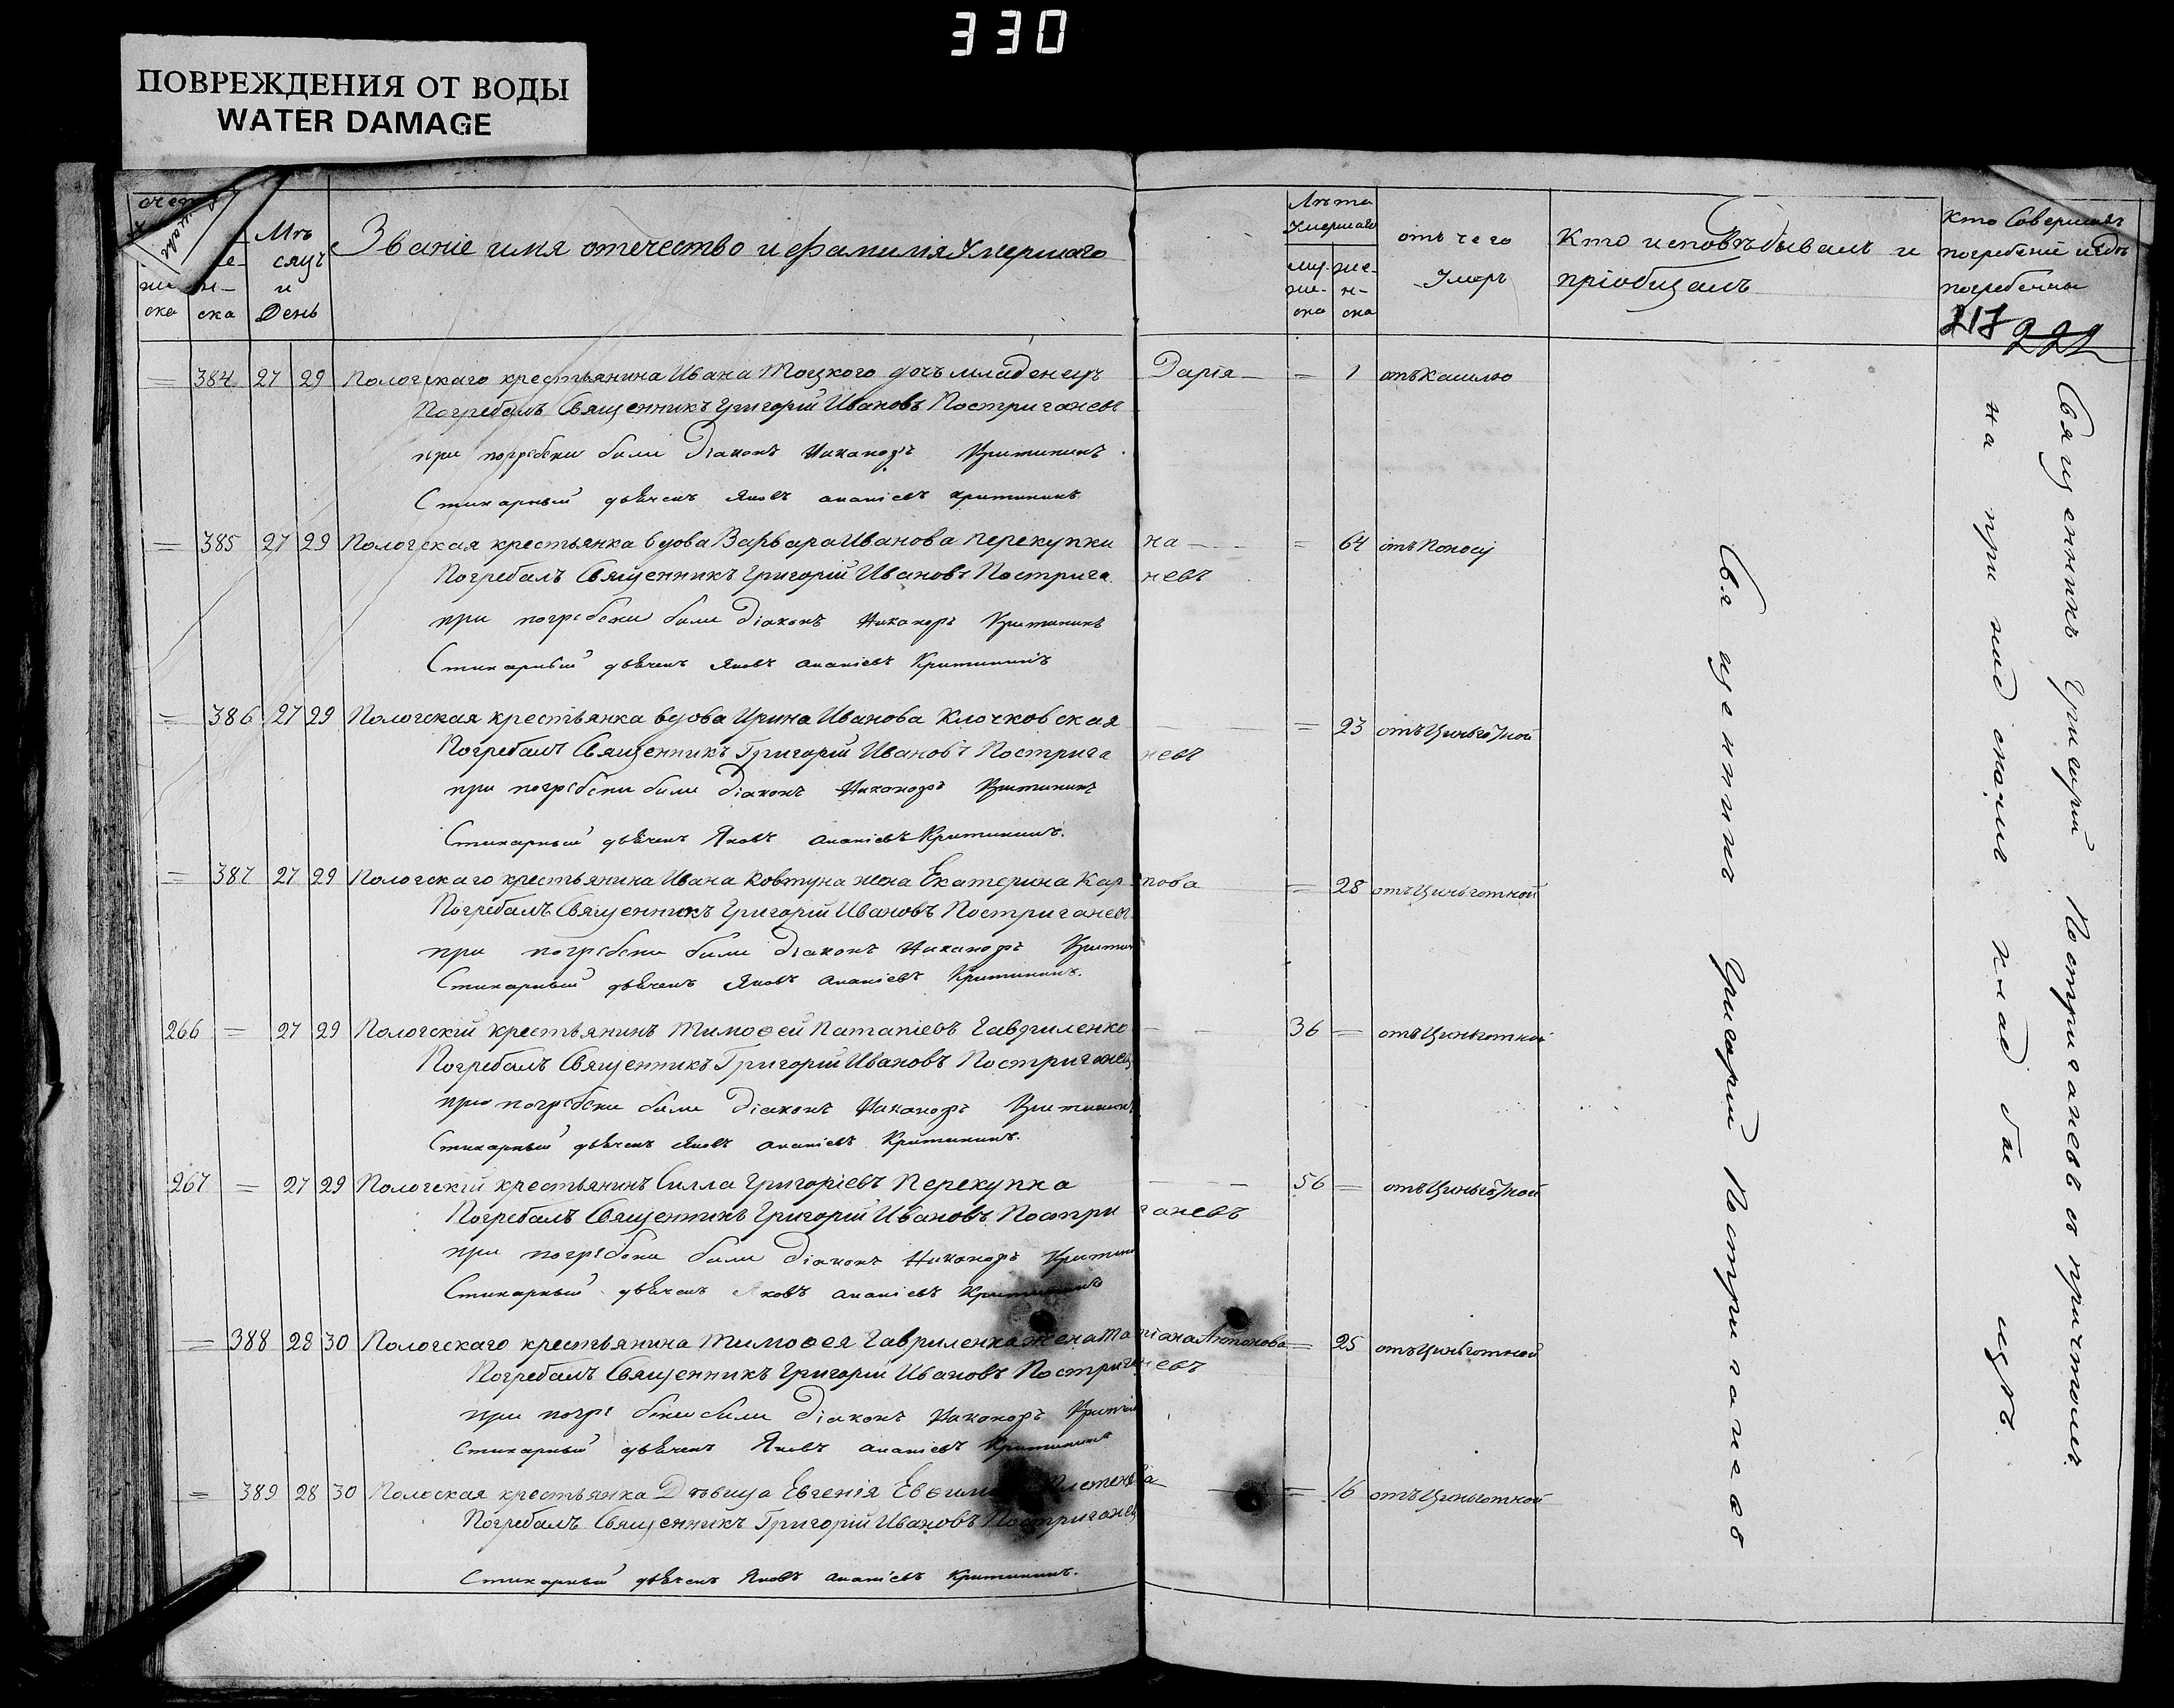 330
ПОВРЕЖДЕНИЯ ОТ ВОДЫ
WATER DAMAGE
Мѣсяцъ и День
Званіе имя отечество и фамилія Умершаго
Лѣта Умершаго
муже-ска
жен-ска
отъ чего Умеръ
Кто исповѣдывалъ и пріобщалъ
Кто Совершалъ погребеніе и гдѣ погребенны
217 222
= 384 27 29 Пологскаго крестьянина Ивана Тоцкого дочъ младенецъ Дарія = 1 отъ Кашлю
Погребалъ Священникъ Григорій Ивановъ Постриганевъ
при погребени били Діаконъ Никаноръ Критининъ
Стихарный дьячекъ Яковъ Ананіевъ Критининъ
= 385 27 29 Пологская крестьянка вдова Варвара Иванова Перекупкина = 64 отъ Поносу
Погребалъ Священникъ Григорій Ивановъ Постриганевъ
при погребени били Діаконъ Никаноръ Критининъ
Стихарный дьячекъ Яковъ Ананіевъ Критининъ
= 386 27 29 Пологская крестьянка вдова Ирина Иванова Клочковская = 23 отъ Циньготной
Погребалъ Священникъ Григорій Ивановъ Постриганевъ
при погребени били Діаконъ Никаноръ Критининъ
Стихарный дьячекъ Яковъ Ананіевъ Критининъ.
= 387 27 29 Пологскаго крестьянина Ивана Ковтуна жена Екатерина Карпова = 28 отъ Циньготной
Погребалъ Священникъ Григорій Ивановъ Постриганевъ
при погребени били Діаконъ Никаноръ Критин
Стихарный дьячекъ Яковъ Ананіевъ Критининъ.
266 = 27 29 Пологскій крестьянинъ Тимофей Патапіевъ Гавриленко 36 = отъ Циньготной
Погребалъ Священникъ Григорій Ивановъ Постриганевъ
при погребени били Діаконъ Никаноръ Критининъ
Стихарный дьячекъ Яковъ Ананіевъ Критининъ.
267 = 27 29 Пологскій крестьянинъ Силла Григоріевъ Перекупка 56 = отъ Циньготной
Погребалъ Священникъ Григорій Ивановъ Постриганевъ
при погребени били Діаконъ Никаноръ Критин
Стихарный дьячекъ Яковъ Ананіевъ Критининъ
= 388 28 30 Пологскаго крестьянина Тимоѳея Гавриленка жена Татіана Антонова = 25 отъ Циньготной
Погребалъ Священникъ Григорій Ивановъ Постриганевъ
при погребени били Діаконъ Никаноръ Критин
Стихарный дьячекъ Яковъ Ананіевъ Критининъ
= 389 28 30 Полоская крестьянка Дѣвица Евгенія = 16 отъ Циньготной
Погребалъ Священникъ Григорій Ивановъ Постриганевъ
Стихарный дьячекъ Яковъ Ананіевъ Критининъ.
Священникъ Григорій Постриганевъ
Священникъ Григорій Постриганевъ съ причтомъ
на кладбищѣ